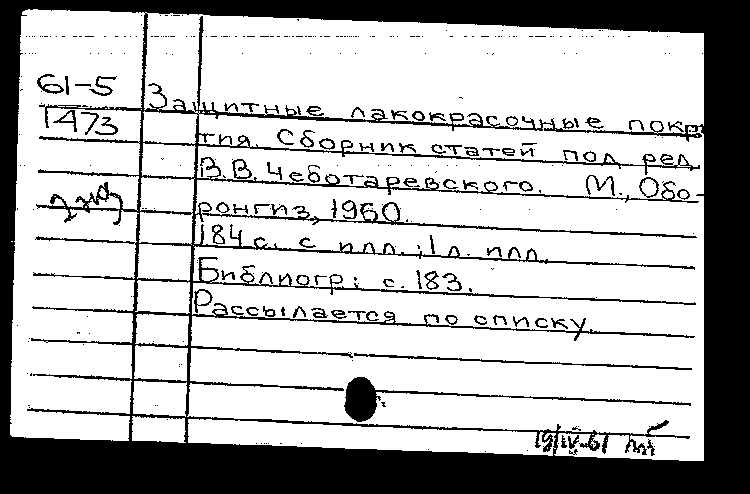 61-5
1473
Защитные лакокрасочные покры
тия. Сборник статей под ред.
В.В. Чеботаревского. М., Обо-
ронгиз, 1960.
184 с. с илл.; 1 л. илл.
Библиогр: с. 183.
Рассылается по списку.
19/IV-61